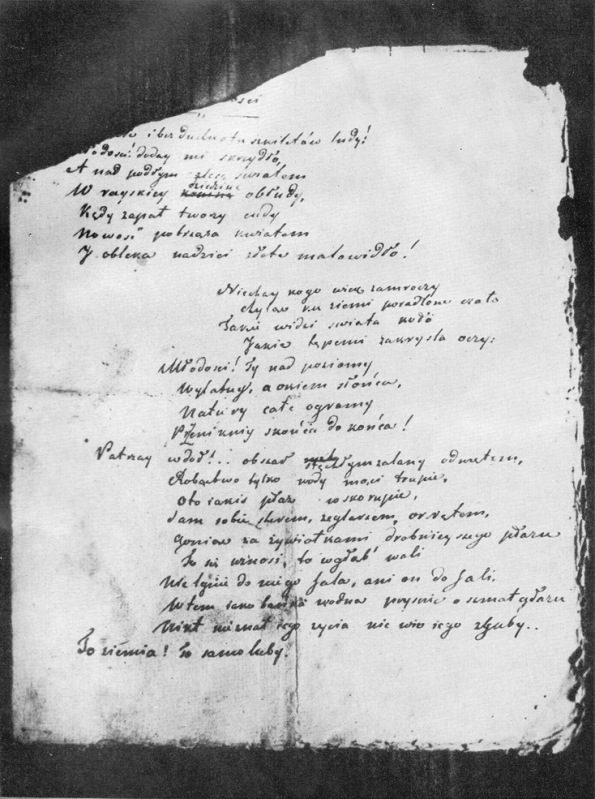 ści
i bez ducha to szkieletów ludy!
Młodości! doday mi skrzydło,
A nad podłym zlecę światem
W rayskiey dziedzinę obłudy,
Kędy zapał tworzy cudy
Nowość potrząsa kwiatem
J obleka nadziei złote malowidło!
Niechay kogo wiek zamroczy
Chyląc ku ziemi poradlone czoło
Takie widzi świata koło
Jakie tępemi zakryśla oczy:
Młodości! Ty nad poziomy
Wylatuy, a okiem słońca,
Natury całe ogromy
Przeniknij z końca do końca!
Patrzay w dół!.. obszar zalany odmętem,
Robactwo tylko wody mąci trupie,
Oto jakiś płaz w skorupie,
Sam sobie sterem, żeglarzem, okrętem,
Goniąc za żywiątkami drobnieyszego płazu
To się wznosi, to w głąb wali
Nie lgnie do niego fala, ani on do fali.
Wtem iako bańka wodna prysnie o szmat głazu
Nikt nieznał iego życia nie wie iego zguby..
To ziemia! To samoluby.